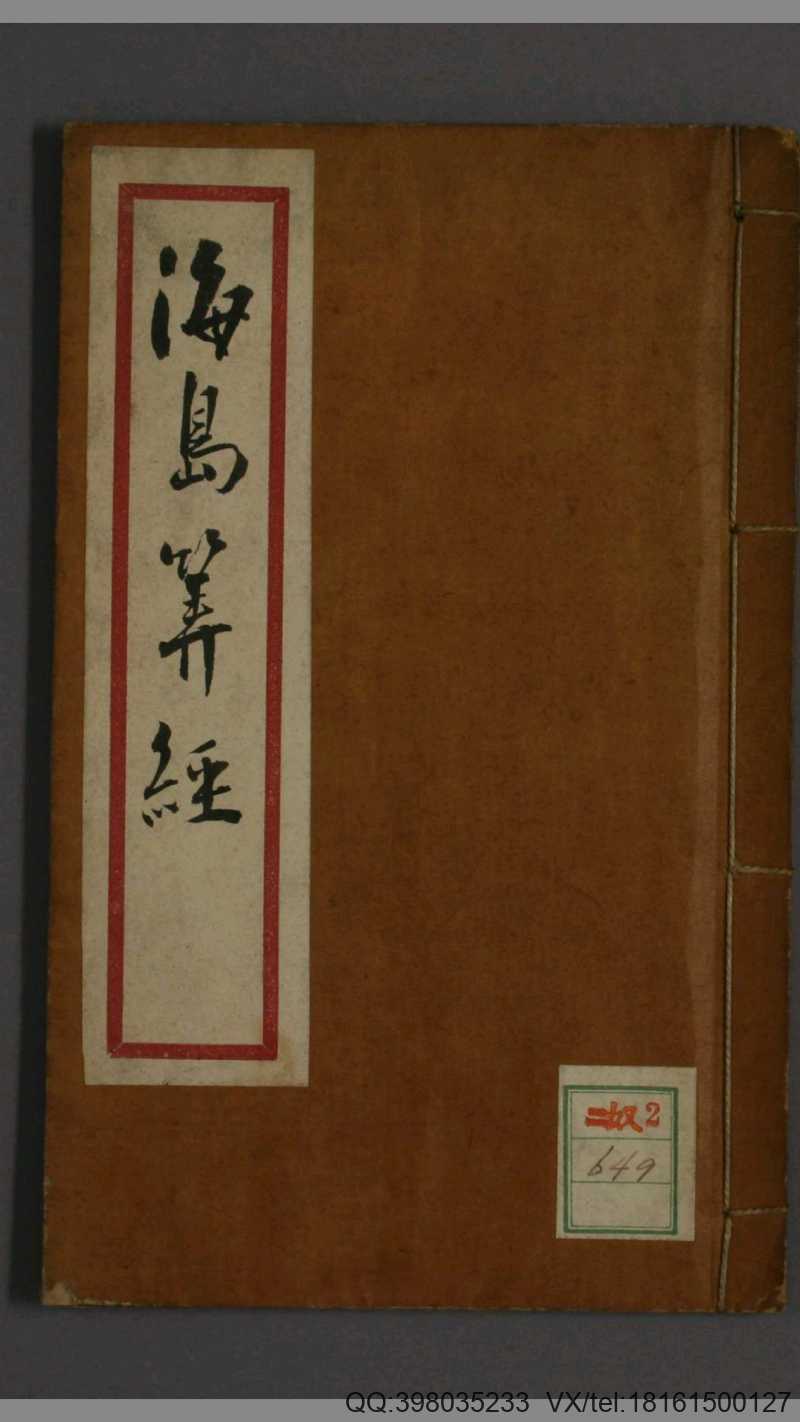 海島筭經
二奴2
649
QQ:398035233 VX/tel:18161500127